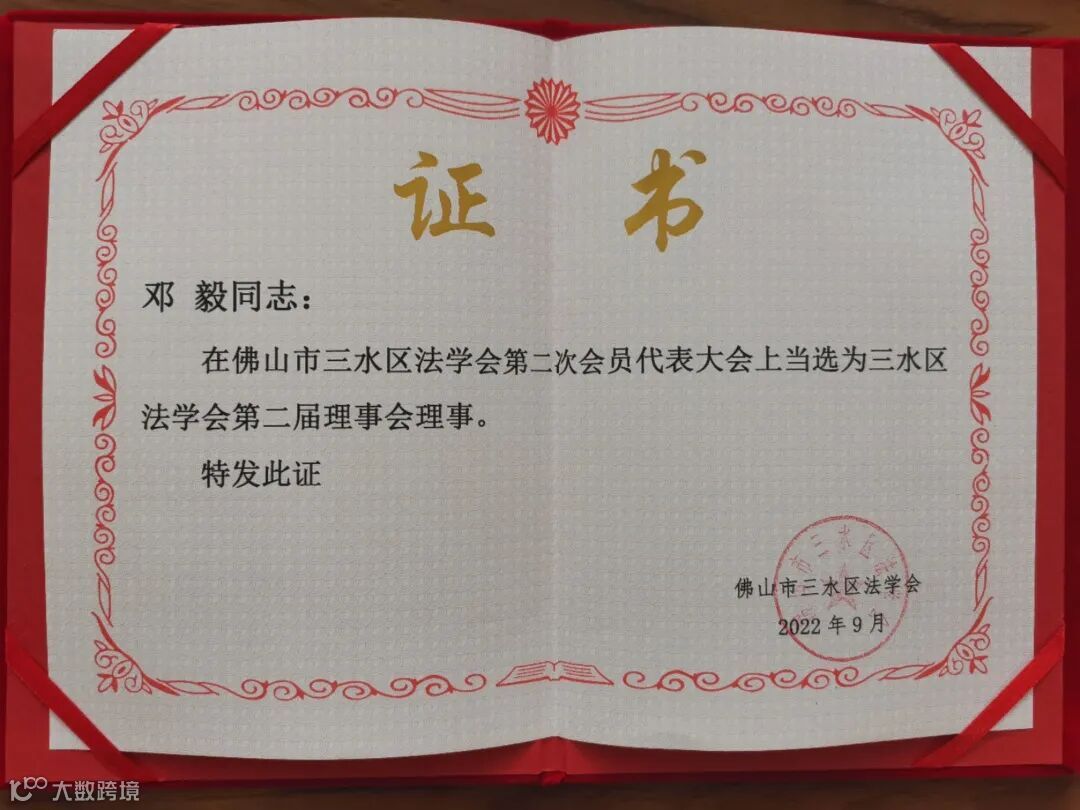 证 书
邓 毅同志：
在佛山市三水区法学会第二次会员代表大会上当选为三水区
法学会第二届理事会理事。
特发此证
市三水区法学会
佛山市三水区法学会
2022年9月
大数跨境